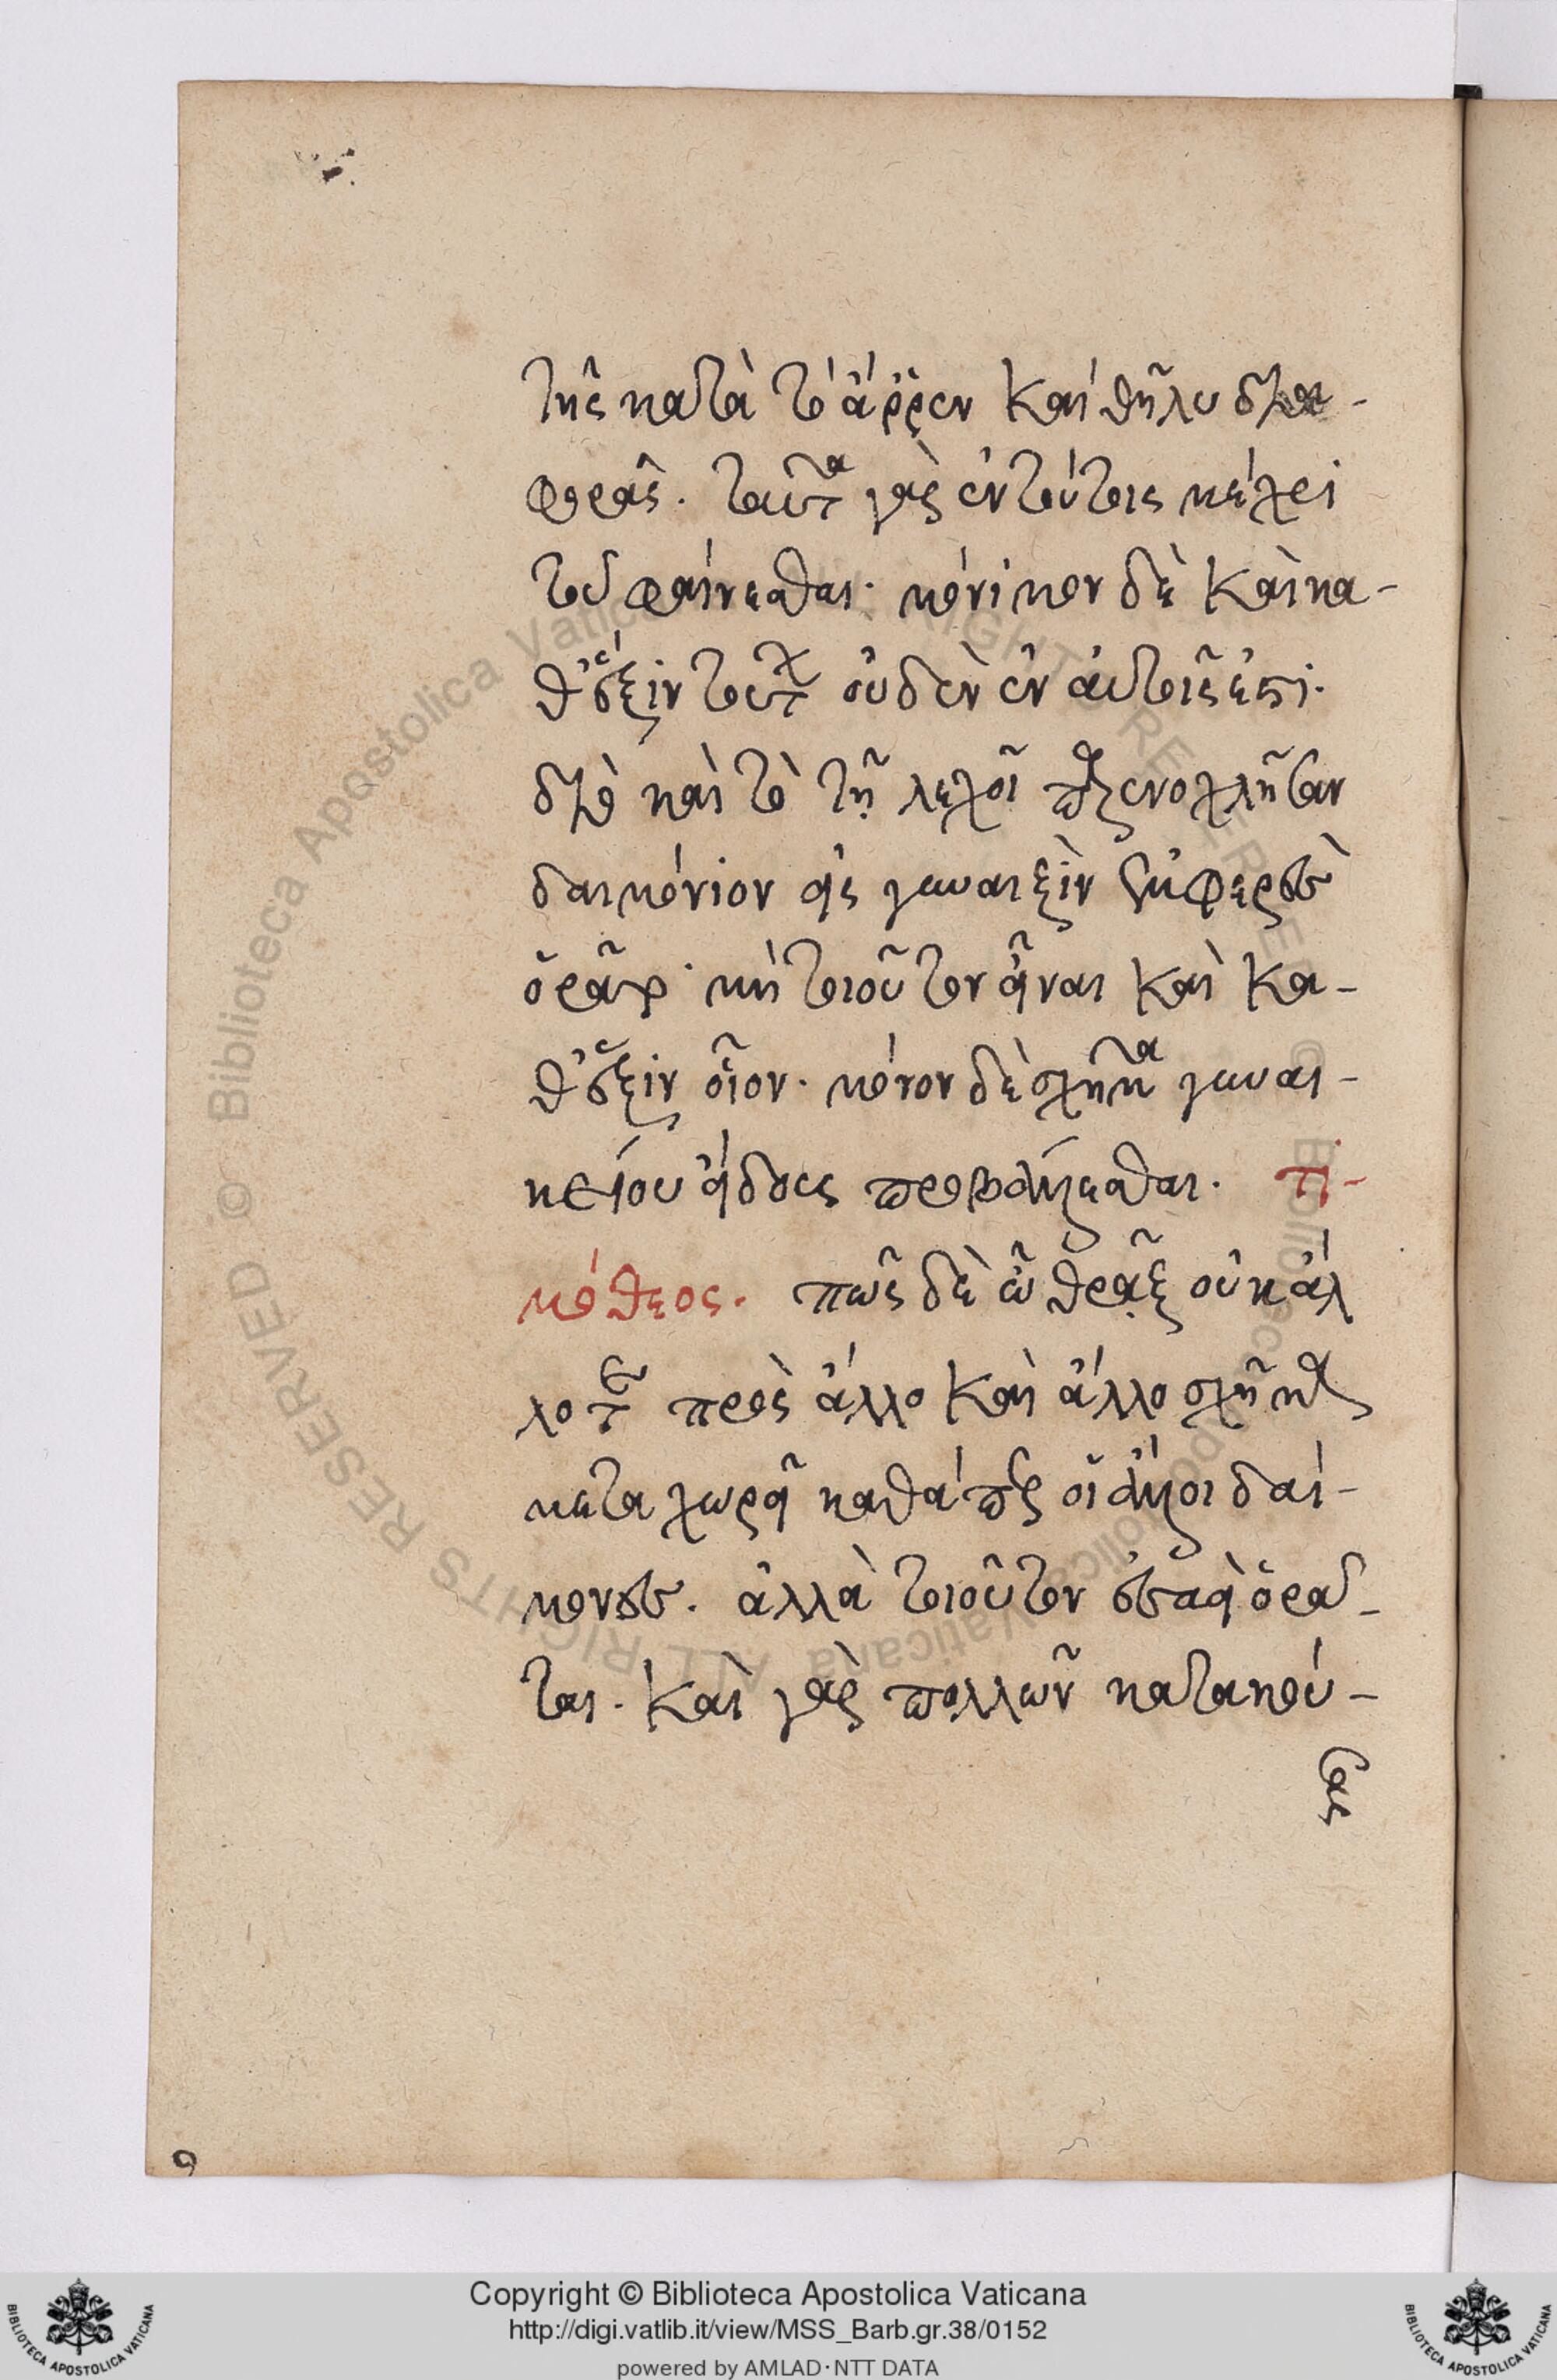 τῆς κατὰ τὸ ἄῤῥεν καὶ θῆλυ δια-
φορᾶς. ταῦτα γὰρ ἐν τούτοις μέχρι
τοῦ φαίνεσθαι· μόνιμον δὲ καὶ κα-
θ' ἕξιν τούτων οὐδὲν ἐν αὐτοῖς ἐστι.
διὸ καὶ τὸ τῇ λεχοῖ παρενοχλῆσαν
δαιμόνιον εἰς γυναιξὶν ἐμφερὲς
ὁρᾶν· μὴ τοιοῦτον εἶναι καὶ κα-
θ' ἕξιν οἷον· μόνον δὲ σχῆμα γυναι-
κείου εἴδους προβάλλεσθαι. Τι-
μόθεος. πῶς δὲ ὦ θρᾷξ οὐκ ἄλ
λοτε πρὸς ἄλλο καὶ ἄλλο σχῆμα
μεταχωρεῖ καθάπερ οἱ ἄλλοι δαί-
μονες. ἀλλὰ τοιοῦτον ἐσαεὶ ὁρᾶ-
ται. καὶ γὰρ πολλῶν κατακού-
σας
Copyright © Biblioteca Apostolica Vaticana
http://digi.vatlib.it/view/MSS_Barb.gr.38/0152
powered by AMLAD·NTT DATA